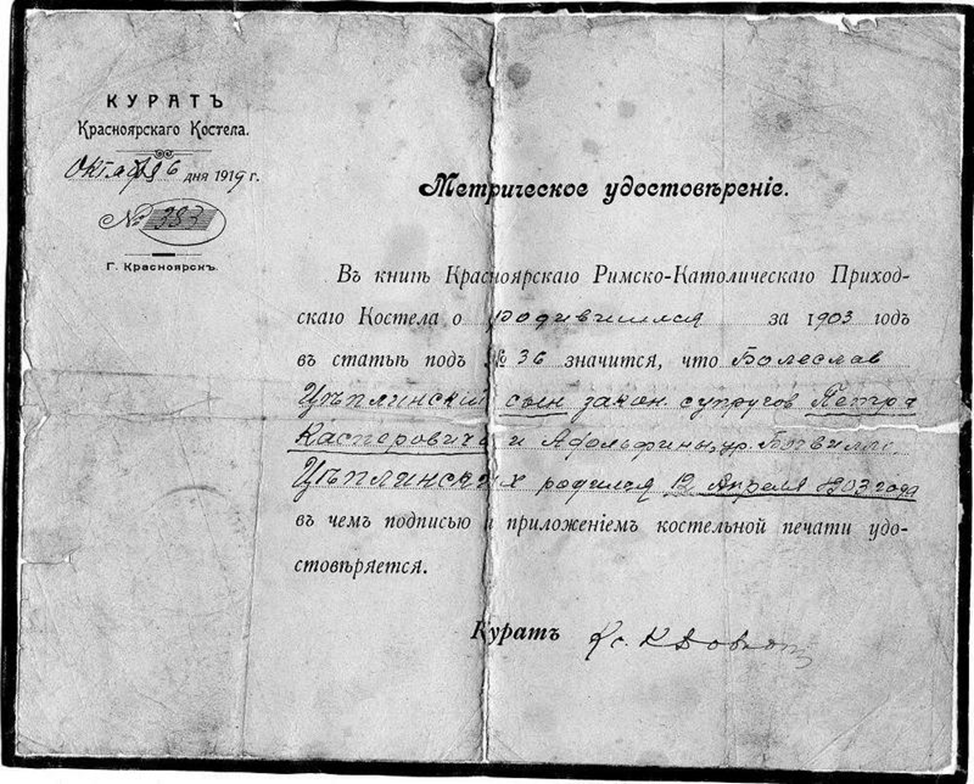 КУРАТЪ
Красноярскаго Костела.
Октября 6 дня 1919 г.
№ 383
Г. Красноярскъ.
Метрическое удостовѣреніе.
Въ книгѣ Красноярскаго Римско-Католическаго Приход-
скаго Костела о родившихся за 1903 годъ
въ статьѣ подъ № 36 значится, что Болеслав
Цѣплинский сын закон. супругов Петра
Касперовича и Адольфины, ур.
Цѣплинских родился 12 Апреля 1903 года
въ чемъ подписью и приложеніемъ костельной печати удо-
стовѣряется.
Куратъ Кс.